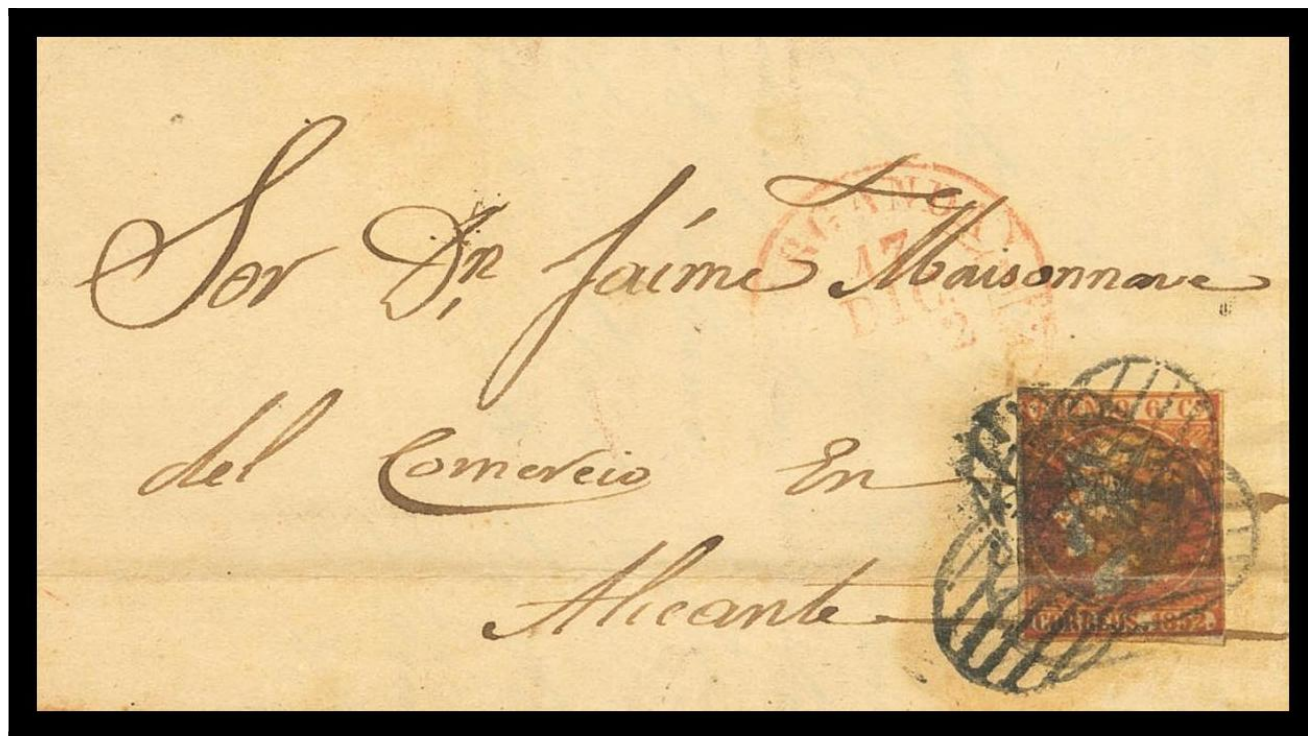 Sor Dn Jaime Maisonnave
del Comercio En
Alicante
17
DIC
2
6 Cs
CORREOS. 1852.